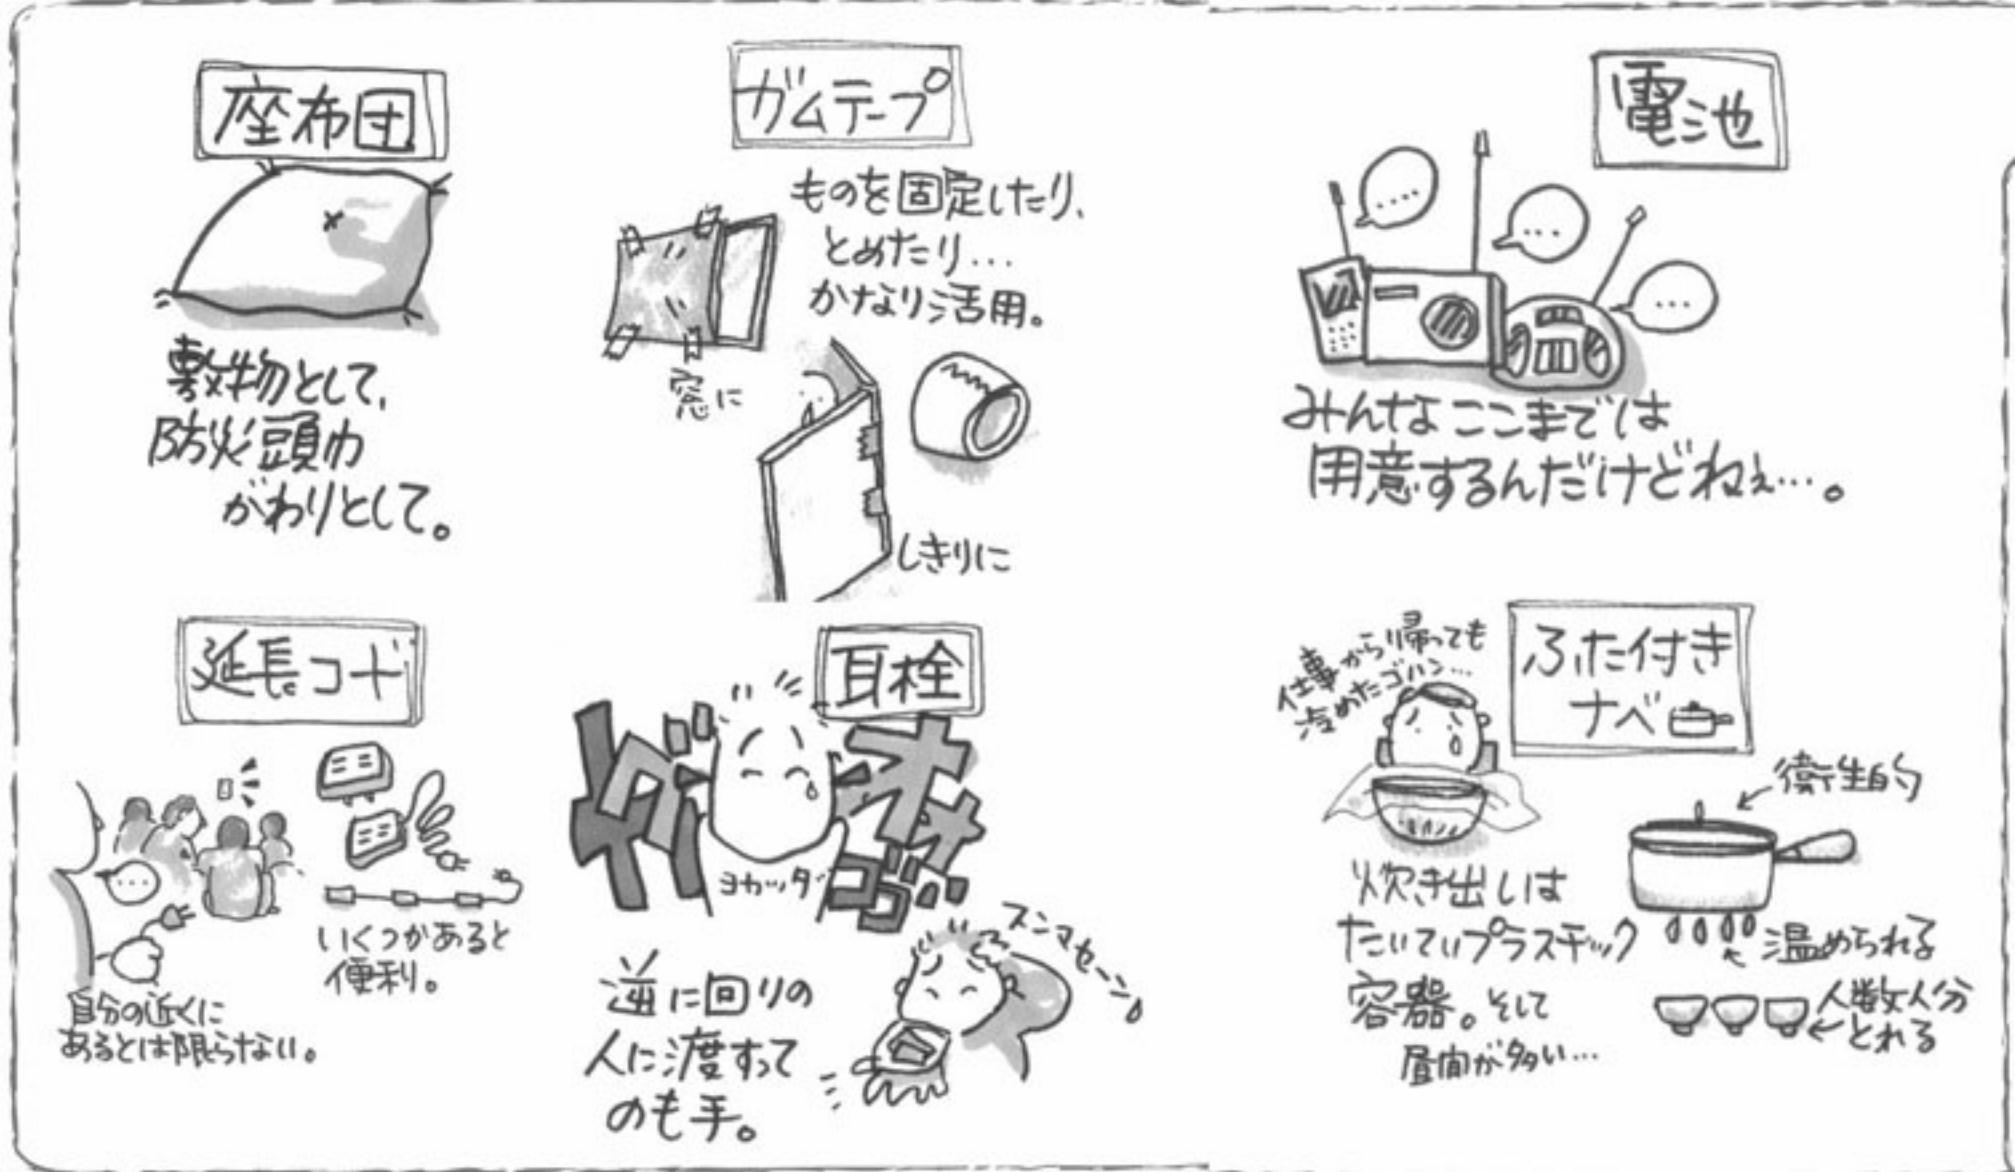 座布団
敷物として、
防災頭巾
がわりとして。
ガムテープ
ものを固定したり、
とめたり…
かなり活用。
窓に
しきりに
電池
....
...
...
みんなここまでは
用意するんだけどねぇ…。
延長コード
...
いくつかあると
便利。
自分の近くに
あるとは限らない。
耳栓
ヨカッタ
逆に回りの
人に渡すって
のも手。
スンマセーン
ふた付き
ナベ
仕事から帰っても
冷めたゴハン…
衛生的
炊き出しは
たいていプラスチック
容器。そして
昼間が多い…
温められる
人数人分
とれる